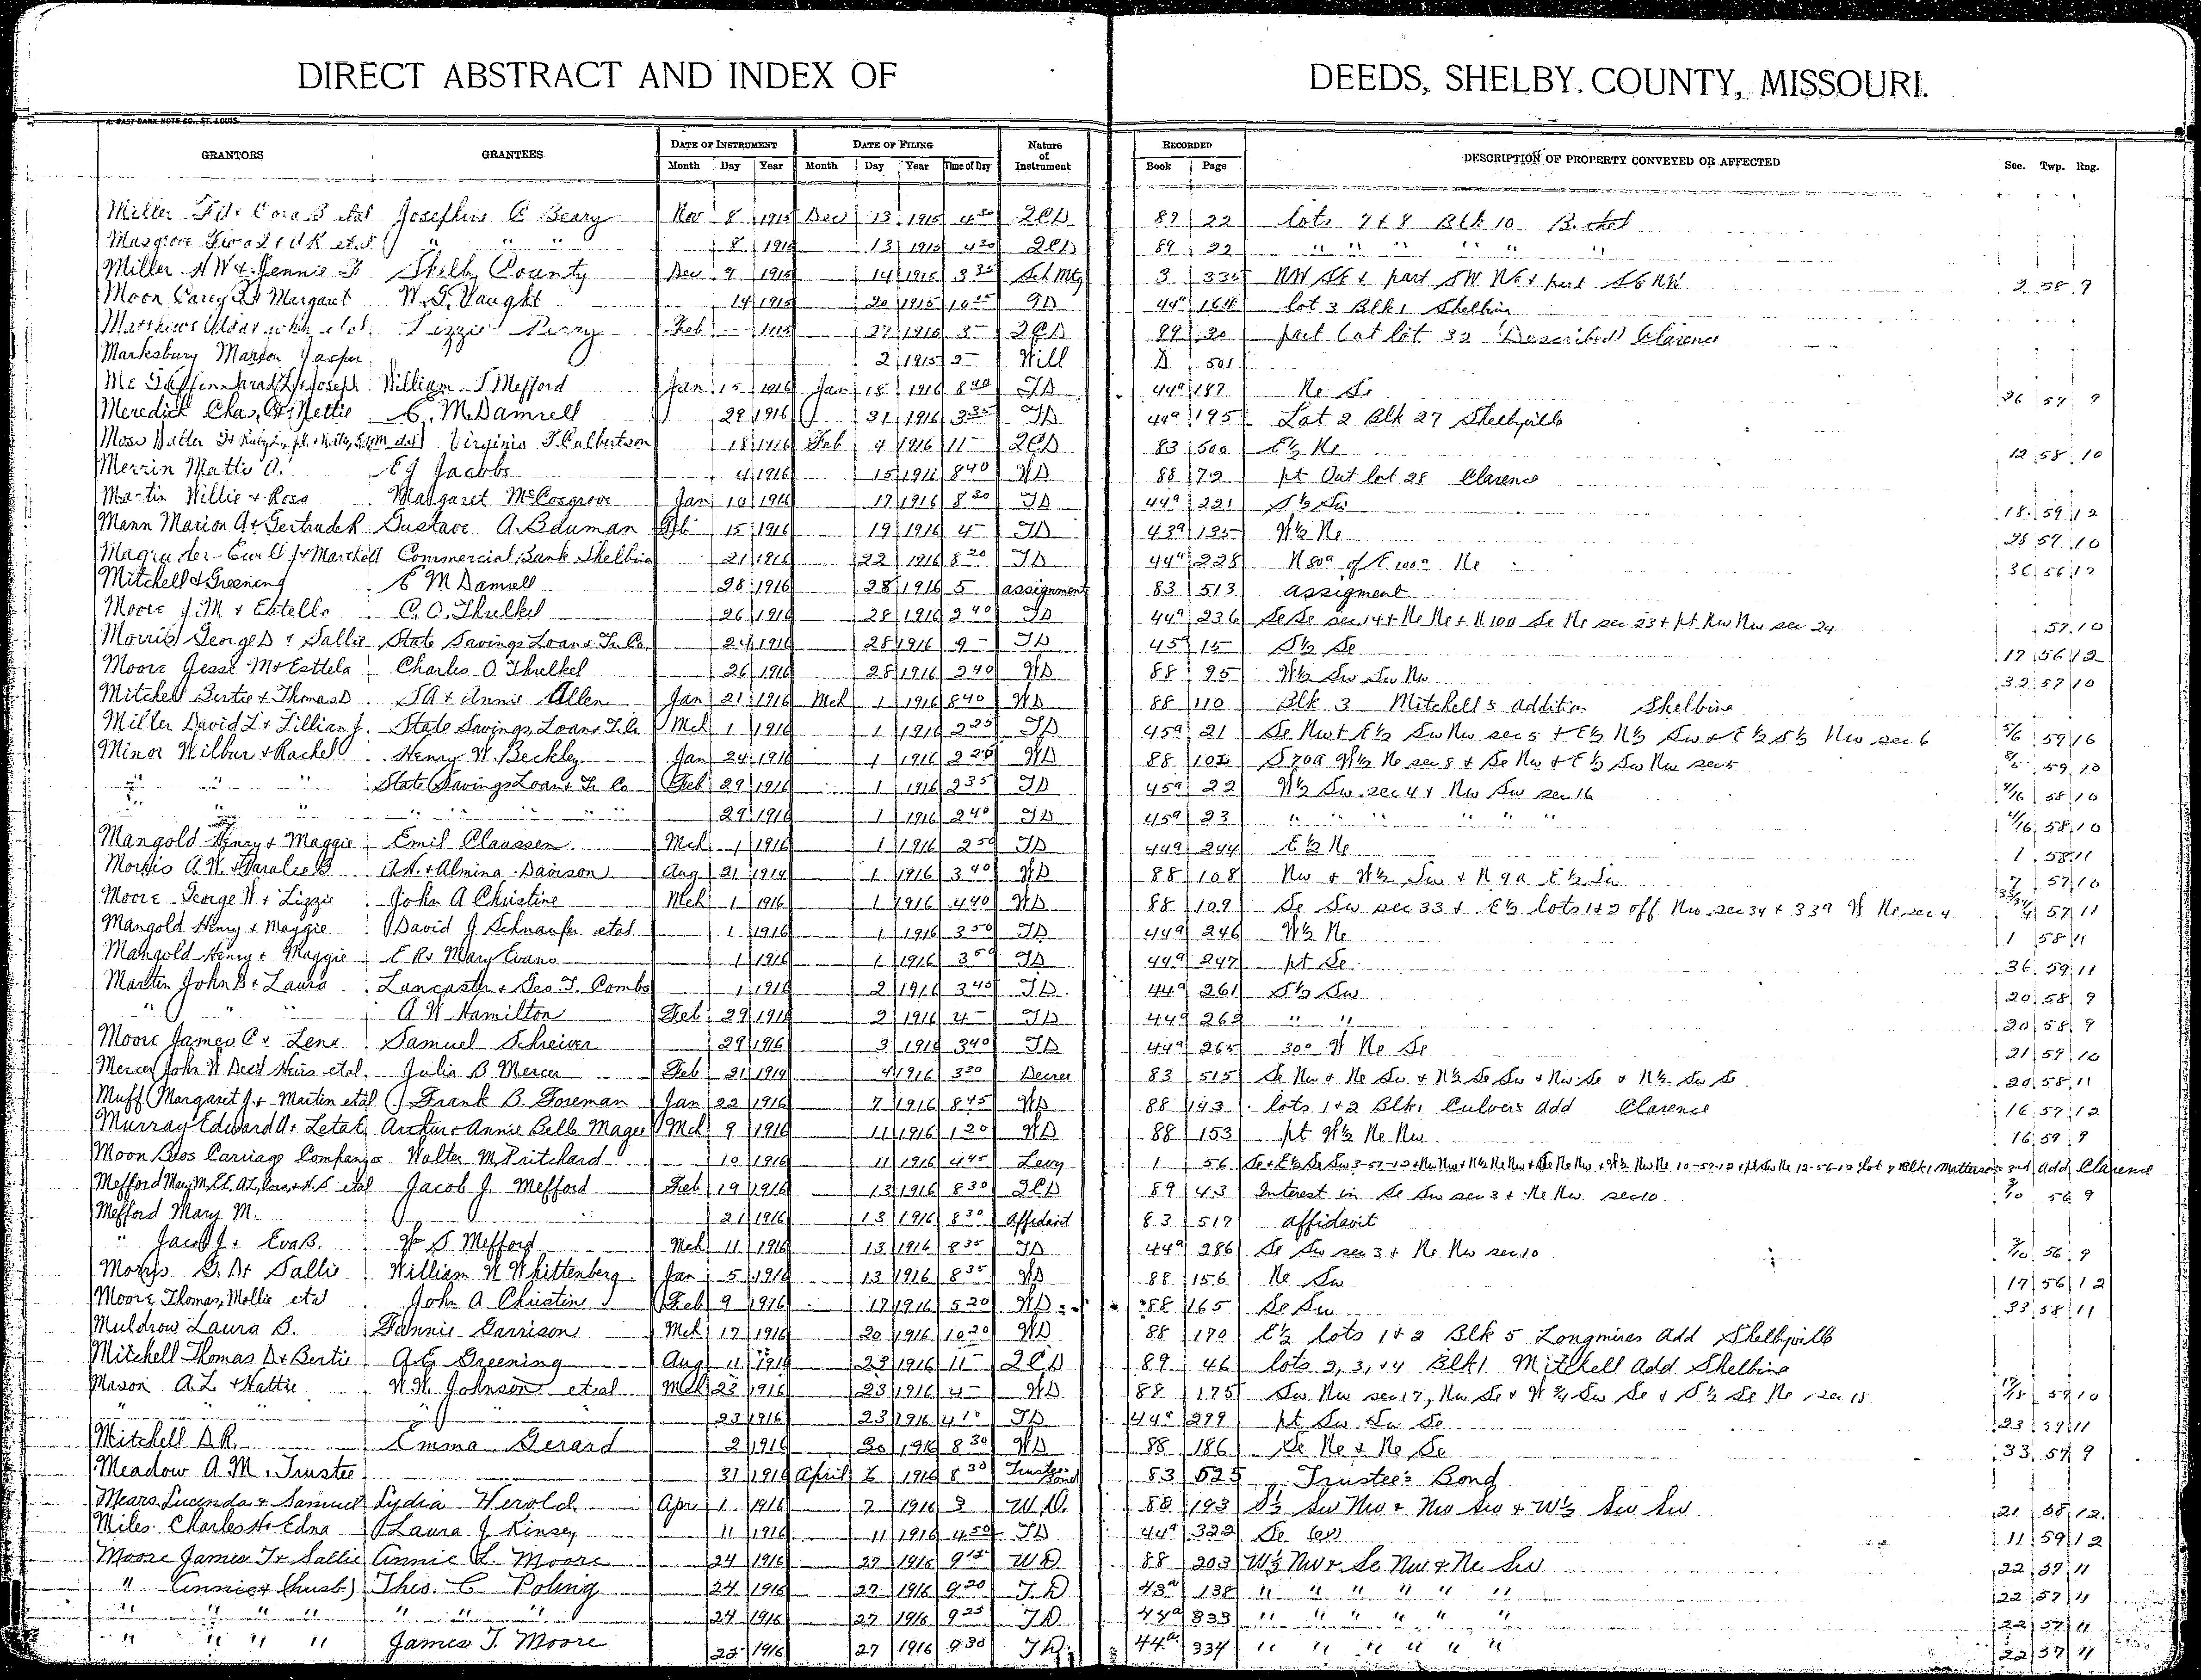 DIRECT ABSTRACT AND INDEX OF DEEDS, SHELBY COUNTY, MISSOURI.
GRANTORS GRANTEES DATE OF INSTRUMENT DATE OF FILING Nature of Instrument RECORDED DESCRIPTION OF PROPERTY CONVEYED OR AFFECTED Sec. Twp. Rng.
Month Day Year Month Day Year Time of Day Book Page
Miller Cora B Josephine C Beary Nov 8 1915 Dec 13 1915 4 20 QCD 89 22 lots 7 & 8 Blk 10 Bethel
Musgrove " " " 8 1915 13 1915 4 20 QCD 89 22 " " " " " "
Miller H W & Jennie F Shelby County Dec 9 1915 14 1915 3 35 Sch Mtg 3 335 NW SE & part SW NE & part SE NW 2 58 9
Moon Carey & Margaret W. T. Vaught 14 1915 20 1915 44a 164 lot 3 Blk 1 Shelbina
Matthews Lizzie Perry Feb 1915 27 1915 3 - QCD 89 30 part Out lot 32 (Described) Clarence
Marksbury Marion Jasper 2 1915 Will D 501
Joseph William S Mefford Jan 15 1916 Jan 18 1916 8 40 TD 44a 187 Ne Se 26 57 9
Meredick Chas. & Nettie C. M. Damrell 29 1916 31 1916 3 35 TD 44a 195 Lot 2 Blk 27 Shelbyville
Virginia F Culbertson 18 1916 Feb 4 1916 11 - QCD 83 500 E½ Ne 12 58 10
Merrin Mattie A. E J Jacobs 4 1916 15 1916 8 40 WD 88 72 pt Out lot 28 Clarence
Martin Willie & Rosa Margaret McCosgrove Jan 10 1916 17 1916 8 30 TD 44a 221 S½ Sw 18 59 12
Mann Marion A & Gertrude K Gustave A. Bauman Feb 15 1916 19 1916 4 - TD 43a 135 W½ Ne 28 57 10
Magruder Commercial Bank Shelbina 21 1916 22 1916 8 20 TD 44a 228 N 80a of E 100a Ne 36 56 12
Mitchell & Greening C M Damrell 28 1916 28 1916 5 assignment 83 513 assigment
Moore J. M & Estella C. O. Thulkel 26 1916 28 1916 2 40 TD 44a 236 Se Se sec 14 & Ne Ne & N 100 Se Ne sec 23 & pt Nw Nw sec 24 57 10
Morris George D & Sallie State Savings Loan & Tr Co 24 1916 28 1916 9 - TD 45a 15 S½ Se 17 56 12
Moore Jesse M & Esttela Charles O Thulkel 26 1916 28 1916 2 40 WD 88 95 W½ Sw Sw Nw 32 57 10
Mitchell Bertie & Thomas D. J A & Annie Allen Jan 21 1916 Mch 1 1916 8 40 WD 88 110 Blk 3 Mitchells addition Shelbina
Miller David L & Lillian J. State Savings, Loan & Tr Co. Mch 1 1916 1 1916 2 25 TD 45a 21 Se Nw & E½ Sw Nw sec 5 & E½ N½ Sw & E½ S½ Nw sec 6 5/6 59 10
Minor Wilbur & Rachel Henry W. Beckley Jan 24 1916 1 1916 2 25 WD 88 102 S 70a W½ Ne sec 8 & Se Nw & E½ Sw Nw sec 5 8/5 59 10
" " " State Savings Loan & Tr Co Feb 29 1916 1 1916 2 35 TD 45a 22 W½ Sw sec 4 & Nw Sw sec 16 4/16 58 10
" " " " " " 29 1916 1 1916 2 40 TD 45a 23 " " " " " " 4/16 58 10
Mangold Henry & Maggie Emil Claussen Mch 1 1916 1 1916 2 50 TD 44a 244 E½ Ne 1 58 11
Morris A. W. & Saralee B A. H. & Almina Davison Aug 21 1914 1 1916 3 40 WD 88 108 Nw & W½ Sw & N 9a E½ Sw 7 57 10
Moore George W & Lizzie John A Christine Mch 1 1916 1 1916 4 40 WD 88 109 Se Sw sec 33 & E½ lots 1 & 2 off Nw sec 34 & 33a W Ne sec 4 33/34/4 57 11
Mangold Henry & Maggie David J Schnaufer etal 1 1916 1 1916 3 50 TD 44a 246 W½ Ne 1 58 11
Mangold Henry & Maggie E R & Mary Evans 1 1916 1 1916 3 50 TD 44a 247 pt Se 36 59 11
Martin John B & Laura Lancaster & Geo. T. Combs 1 1916 2 1916 3 45 TD 44a 261 S½ Sw 20 58 9
" " " A W Hamilton Feb 29 1916 2 1916 4 - TD 44a 262 " " 20 58 9
Moore James C & Lena Samuel Schreiver 29 1916 3 1916 3 40 TD 44a 265 30a W Ne Se 21 59 10
Mercer John W Decd Heirs etal. Julia B Mercer Feb 21 1914 4 1916 3 30 Decree 83 515 Se Nw & Ne Sw & N½ Se Sw & Nw Se & N½ Sw Se 20 58 11
Muff Margaret J. & Martin etal Frank B. Foreman Jan 22 1916 7 1916 8 45 WD 88 143 lots 1 & 2 Blk 1 Culvers Add Clarence 16 57 12
Murray Edward A & Letal Arthur & Annie Belle Magee Mch 9 1916 11 1916 1 20 WD 88 153 pt W½ Ne Nw 16 59 9
Moon Bros Carriage Company Walter M. Pritchard 10 1916 11 1916 4 45 Levy 1 56 Mattersons 2nd Add Clarence
Mefford etal Jacob J. Mefford Feb 19 1916 13 1916 8 30 QCD 89 43 Interest in Se Sw sec 3 & Ne Nw sec 10 3/10 56 9
Mefford Mary M. 21 1916 13 1916 8 30 Affidavit 83 517 affidavit
" Jacob J. & Eva B. Wm S Mefford Mch 11 1916 13 1916 8 35 TD 44a 286 Se Sw sec 3 & Ne Nw sec 10 3/10 56 9
Morris G. D & Sallie William W Whittenberg Jan 5 1916 13 1916 8 35 WD 88 156 Ne Sw 17 56 12
Moore Thomas, Mollie etal John A Christine Feb 9 1916 17 1916 5 20 WD 88 165 Se Sw 33 58 11
Muldrow Laura B. Fannie Garrison Mch 17 1916 20 1916 10 20 WD 88 170 E½ lots 1 & 2 Blk 5 Longmires Add Shelbyville
Mitchell Thomas D & Bertie A. E Greening Aug 11 1914 23 1916 11 - QCD 89 46 lots 2, 3, & 4 Blk 1 Mitchell Add Shelbina
Mason A. L. & Hattie W. W. Johnson etal Mch 23 1916 23 1916 4 - WD 88 175 Sw Nw sec 17, Nw Se & W ¾ Sw Se & S½ Se Ne sec 18 17/18 59 10
" " " " 23 1916 23 1916 4 10 TD 44a 299 pt Sw Sw Se 23 59 11
Mitchell D R. Emma Gerard 2 1916 30 1916 8 30 WD 88 186 Se Ne & Ne Se 33 57 9
Meadow A. M. Trustee 31 1916 April 6 1916 8 30 Trustees Bond 83 525 Trustee's Bond
Mears Lucinda & Samuel Lydia Herold Apr 1 1916 7 1916 3 W. D. 88 193 S½ Sw Nw & Nw Sw & W½ Sw Sw 21 58 12
Miles Charles H & Edna Laura J Kinsey 11 1916 11 1916 4 50 TD 44a 322 Se 11 59 12
Moore James T & Sallie Annie L. Moore 24 1916 27 1916 9 15 WD 88 203 W½ Nw & Se Nw & Ne Sw 22 57 11
" Annie & (husb) Theo. C Poling 24 1916 27 1916 9 20 T. D 43a 138 " " " " " " 22 57 11
" " " " " " " 24 1916 27 1916 9 25 TD 44a 333 " " " " " " 22 57 11
" " " " James T. Moore 25 1916 27 1916 9 30 TD. 44a 334 " " " " " " 22 57 11